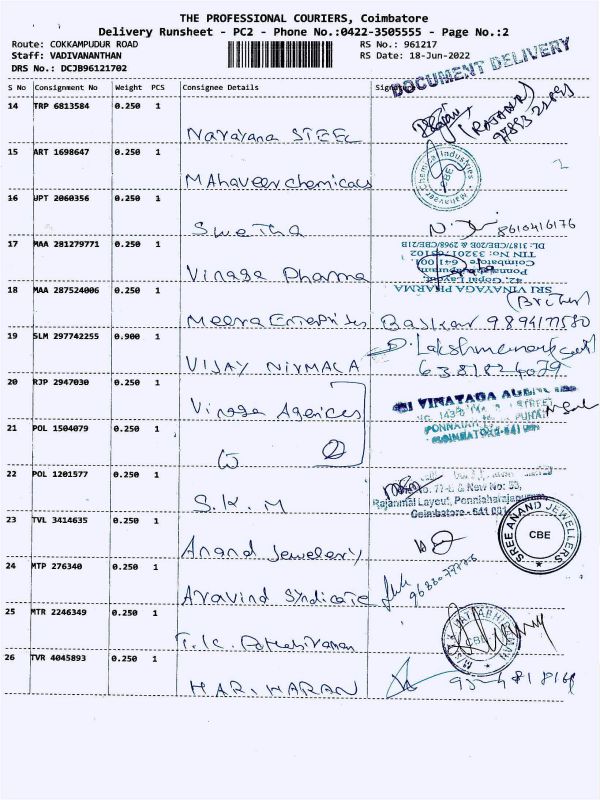 THE PROFESSIONAL COURIERS, Coimbatore
Delivery Runsheet - PC2 - Phone No.:0422-3505555 - Page No.:2
Route: COKKAMPUDUR ROAD RS No.: 961217
Staff: VADIVANANTHAN RS Date: 18-Jun-2022
DRS No.: DCJB96121702
DOCUMENT DELIVERY
S No Consignment No Weight PCS Consignee Details
14 TRP 6813584 0.250 1
Narayana STEEL
(RAJAN R)
15 ART 1698647 0.250 1
MAhaveer chemicals
Mahaveer Chemical Industries CBE
16 UPT 2060356 0.250 1
Swetha 8610416176
17 MAA 281279771 0.250 1
Vinaga Pharma
SRI VINAYAGA PHARMA
42, Gopal Layout,
Ponnaiahrajapuram
Coimbatore - 641 001.
TIN No: 33201
DL: 3187/CBE/20B & 2968/CBE/21B
18 MAA 287524006 0.250 1
Meena Enterprises Baskar 9894177580
19 SLM 297742255 0.900 1
VIJAY NIRMALA
20 RJP 2947030 0.250 1
Vinaga Agencies
SRI VINAYAGA
STREET
COIMBATORE-641 001
21 POL 1504079 0.250 1
22 POL 1201577 0.250 1
S.K.M
No. 77-E & New No: 53,
Rajammal Layout, Ponniaharajapuram,
Coimbatore - 641 001
23 TVL 3414635 0.250 1
Anand Jewellery
SREE ANAND JEWELLERS CBE
24 MTP 276340 0.250 1
Aravind Syndicate
25 MTR 2246349 0.250 1
CBE
26 TVR 4045893 0.250 1
HARIHARAN